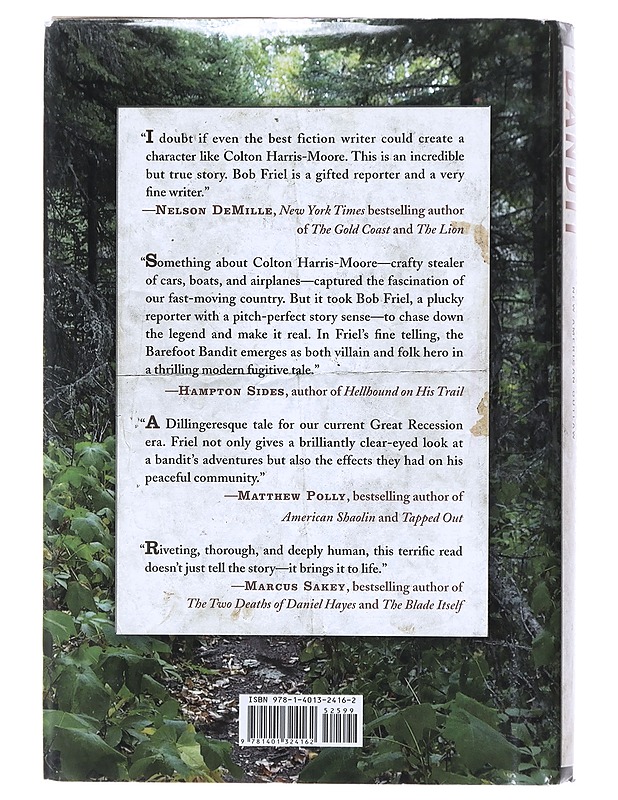 “I doubt if even the best fiction writer could create a
character like Colton Harris-Moore. This is an incredible
but true story. Bob Friel is a gifted reporter and a very
fine writer.”
—NELSON DEMILLE, New York Times bestselling author
of The Gold Coast and The Lion
“Something about Colton Harris-Moore—crafty stealer
of cars, boats, and airplanes—captured the fascination of
our fast-moving country. But it took Bob Friel, a plucky
reporter with a pitch-perfect story sense—to chase down
the legend and make it real. In Friel’s fine telling, the
Barefoot Bandit emerges as both villain and folk hero in
a thrilling modern fugitive tale.”
—HAMPTON SIDES, author of Hellhound on His Trail
“A Dillingeresque tale for our current Great Recession
era. Friel not only gives a brilliantly clear-eyed look at
a bandit’s adventures but also the effects they had on his
peaceful community.”
—MATTHEW POLLY, bestselling author of
American Shaolin and Tapped Out
“Riveting, thorough, and deeply human, this terrific read
doesn’t just tell the story—it brings it to life.”
—MARCUS SAKEY, bestselling author of
The Two Deaths of Daniel Hayes and The Blade Itself
ISBN 978-1-4013-2416-2
52599
9 781401 324162
BANDIT
NEW AMERICAN OUTLAW